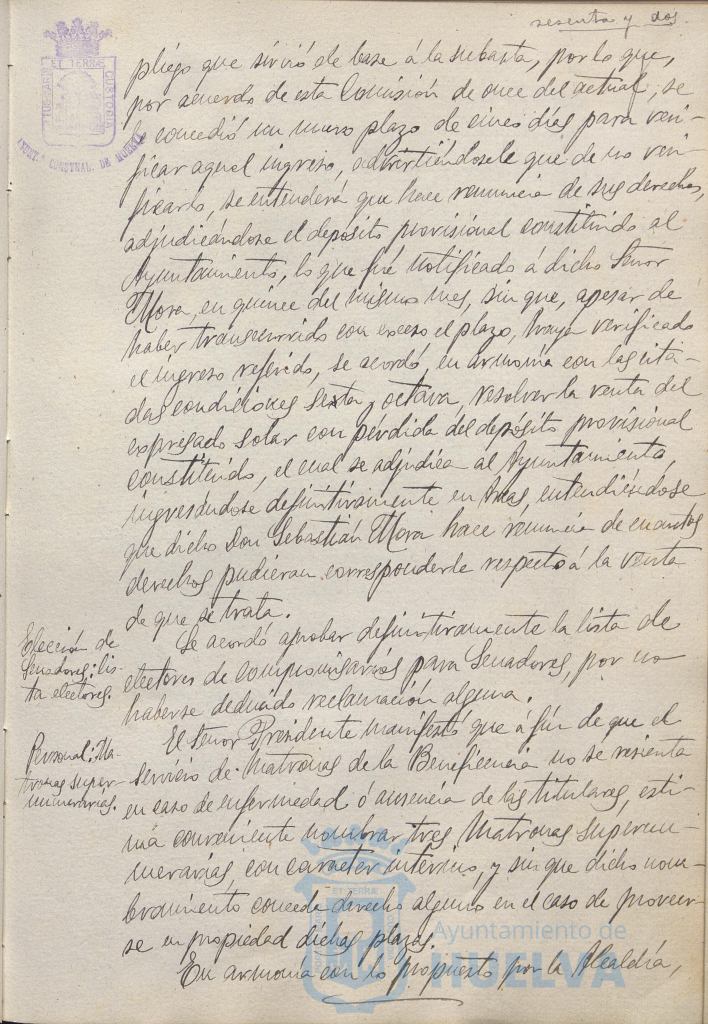 sesenta y dos.
pliego que sirvió de base á la subasta, por lo que,
por acuerdo de esta Comisión de once del actual, se
le concedió un nuevo plazo de cinco días para veri-
ficar aquel ingreso, advirtiéndosele que de no veri-
ficarlo, se entenderá que hace renuncia de sus derechos,
adjudicándose el depósito provisional constituido al
Ayuntamiento, lo que fué notificado á dicho Señor
Mora, en quince del mismo mes, sin que, apesar de
haber transcurrido con exceso el plazo, haya verificado
el ingreso referido, se acordó, en armonía con las cita-
das condiciones sexta y octava, resolver la venta del
expresado solar con pérdida del depósito provisional
constituido, el cual se adjudica al Ayuntamiento,
ingresándose definitivamente en Arcas, entendiéndose
que dicho Don Sebastián Mora hace renuncia de cuantos
derechos pudieran corresponderle respecto á la venta
de que se trata.
Elección de
Senadores: lis-
ta electores.
Se acordó aprobar definitivamente la lista de
electores de Compromisarios para Senadores, por no
haberse deducido reclamación alguna.
Personal: Ma-
tronas super-
numerarias.
El Señor Presidente manifestó que á fin de que el
servicio de Matronas de la Beneficencia no se resienta
en caso de enfermedad ó ausencia de las titulares, esti-
ma conveniente nombrar tres Matronas supernu-
merarias, con caracter interino, y sin que dicho nom-
bramiento conceda derecho alguno en el caso de proveer-
se en propiedad dichas plazas.
En armonía con lo propuesto por la Alcaldía,
ET TERRÆ
CUSTODIA
AYUNTº CONSTNAL. DE HUELVA
Ayuntamiento de
HUELVA